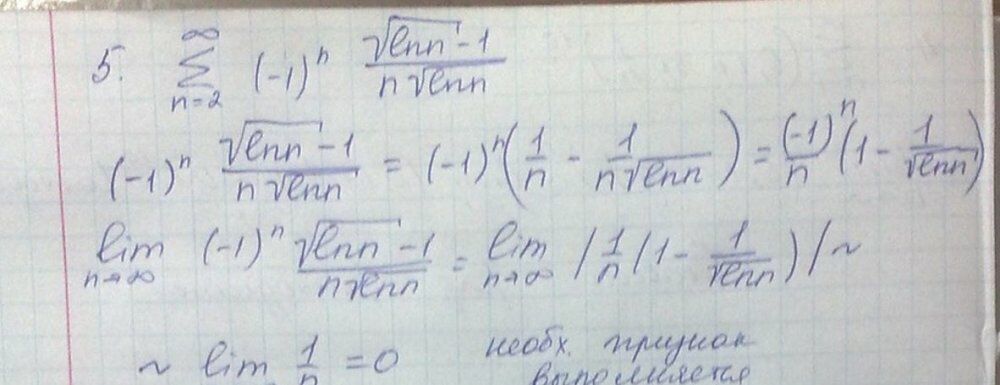 5. ∑_{n=2}^{∞} (-1)^n (√(ln n) - 1)/(n √(ln n))
(-1)^n (√(ln n) - 1)/(n √(ln n)) = (-1)^n (1/n - 1/(n √(ln n))) = (-1)^n/n (1 - 1/√(ln n))
lim_{n→∞} (-1)^n (√(ln n) - 1)/(n √(ln n)) = lim_{n→∞} |1/n (1 - 1/√(ln n))| ~
~ lim 1/n = 0 необх. признак
выполняется